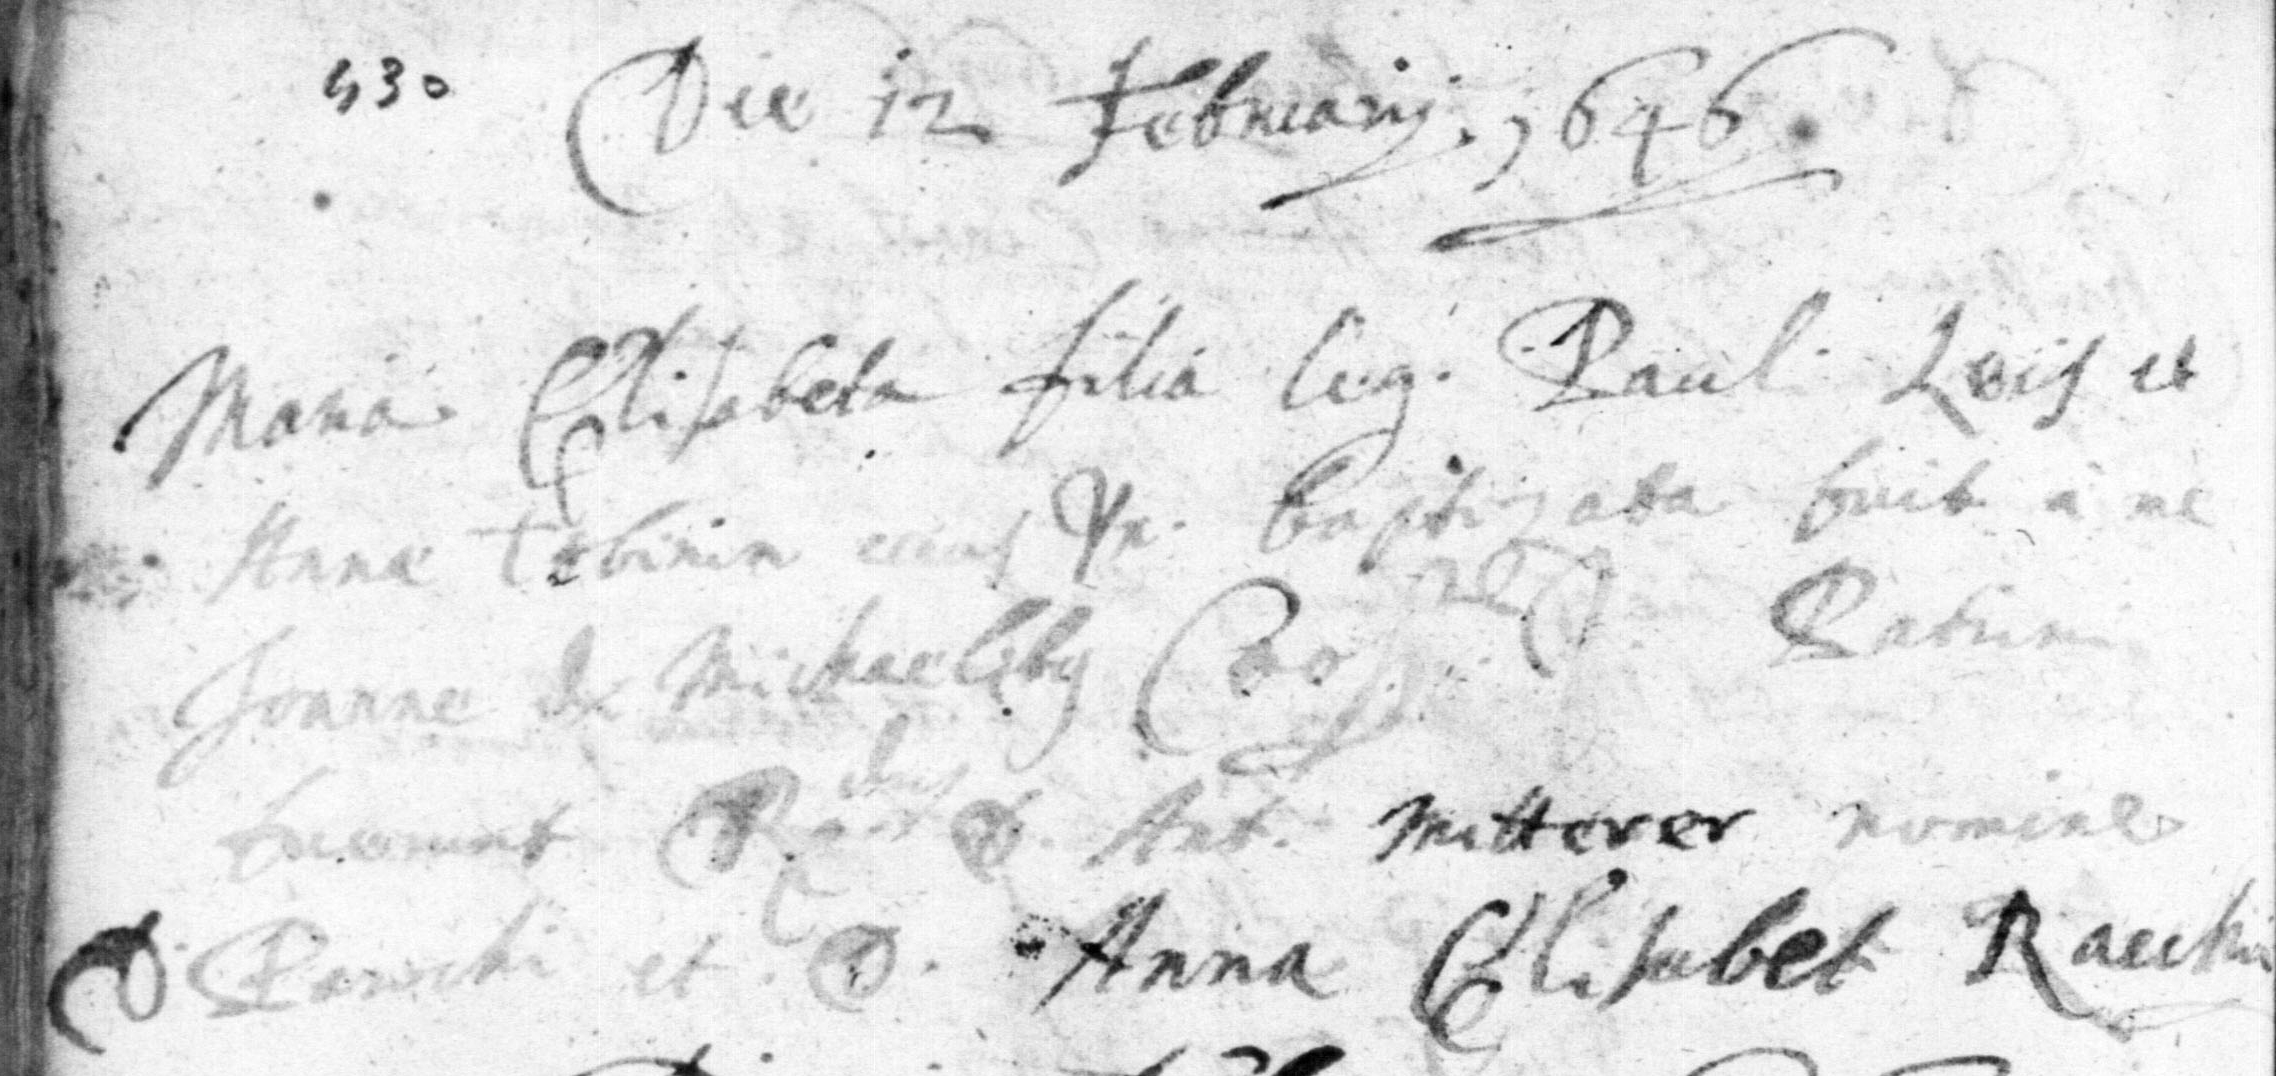 430 Die 12 Februarij. 1646.
Maria Elisabeta filia leg. Paul Lois et
Anna Tobinin eius Vx. baptizata fuit a me
Joanne de Michaelsby Coop. Patrini
fuerunt R dus D. Ant. Mitterer nomine
D. Parochi et D. Anna Elisabet